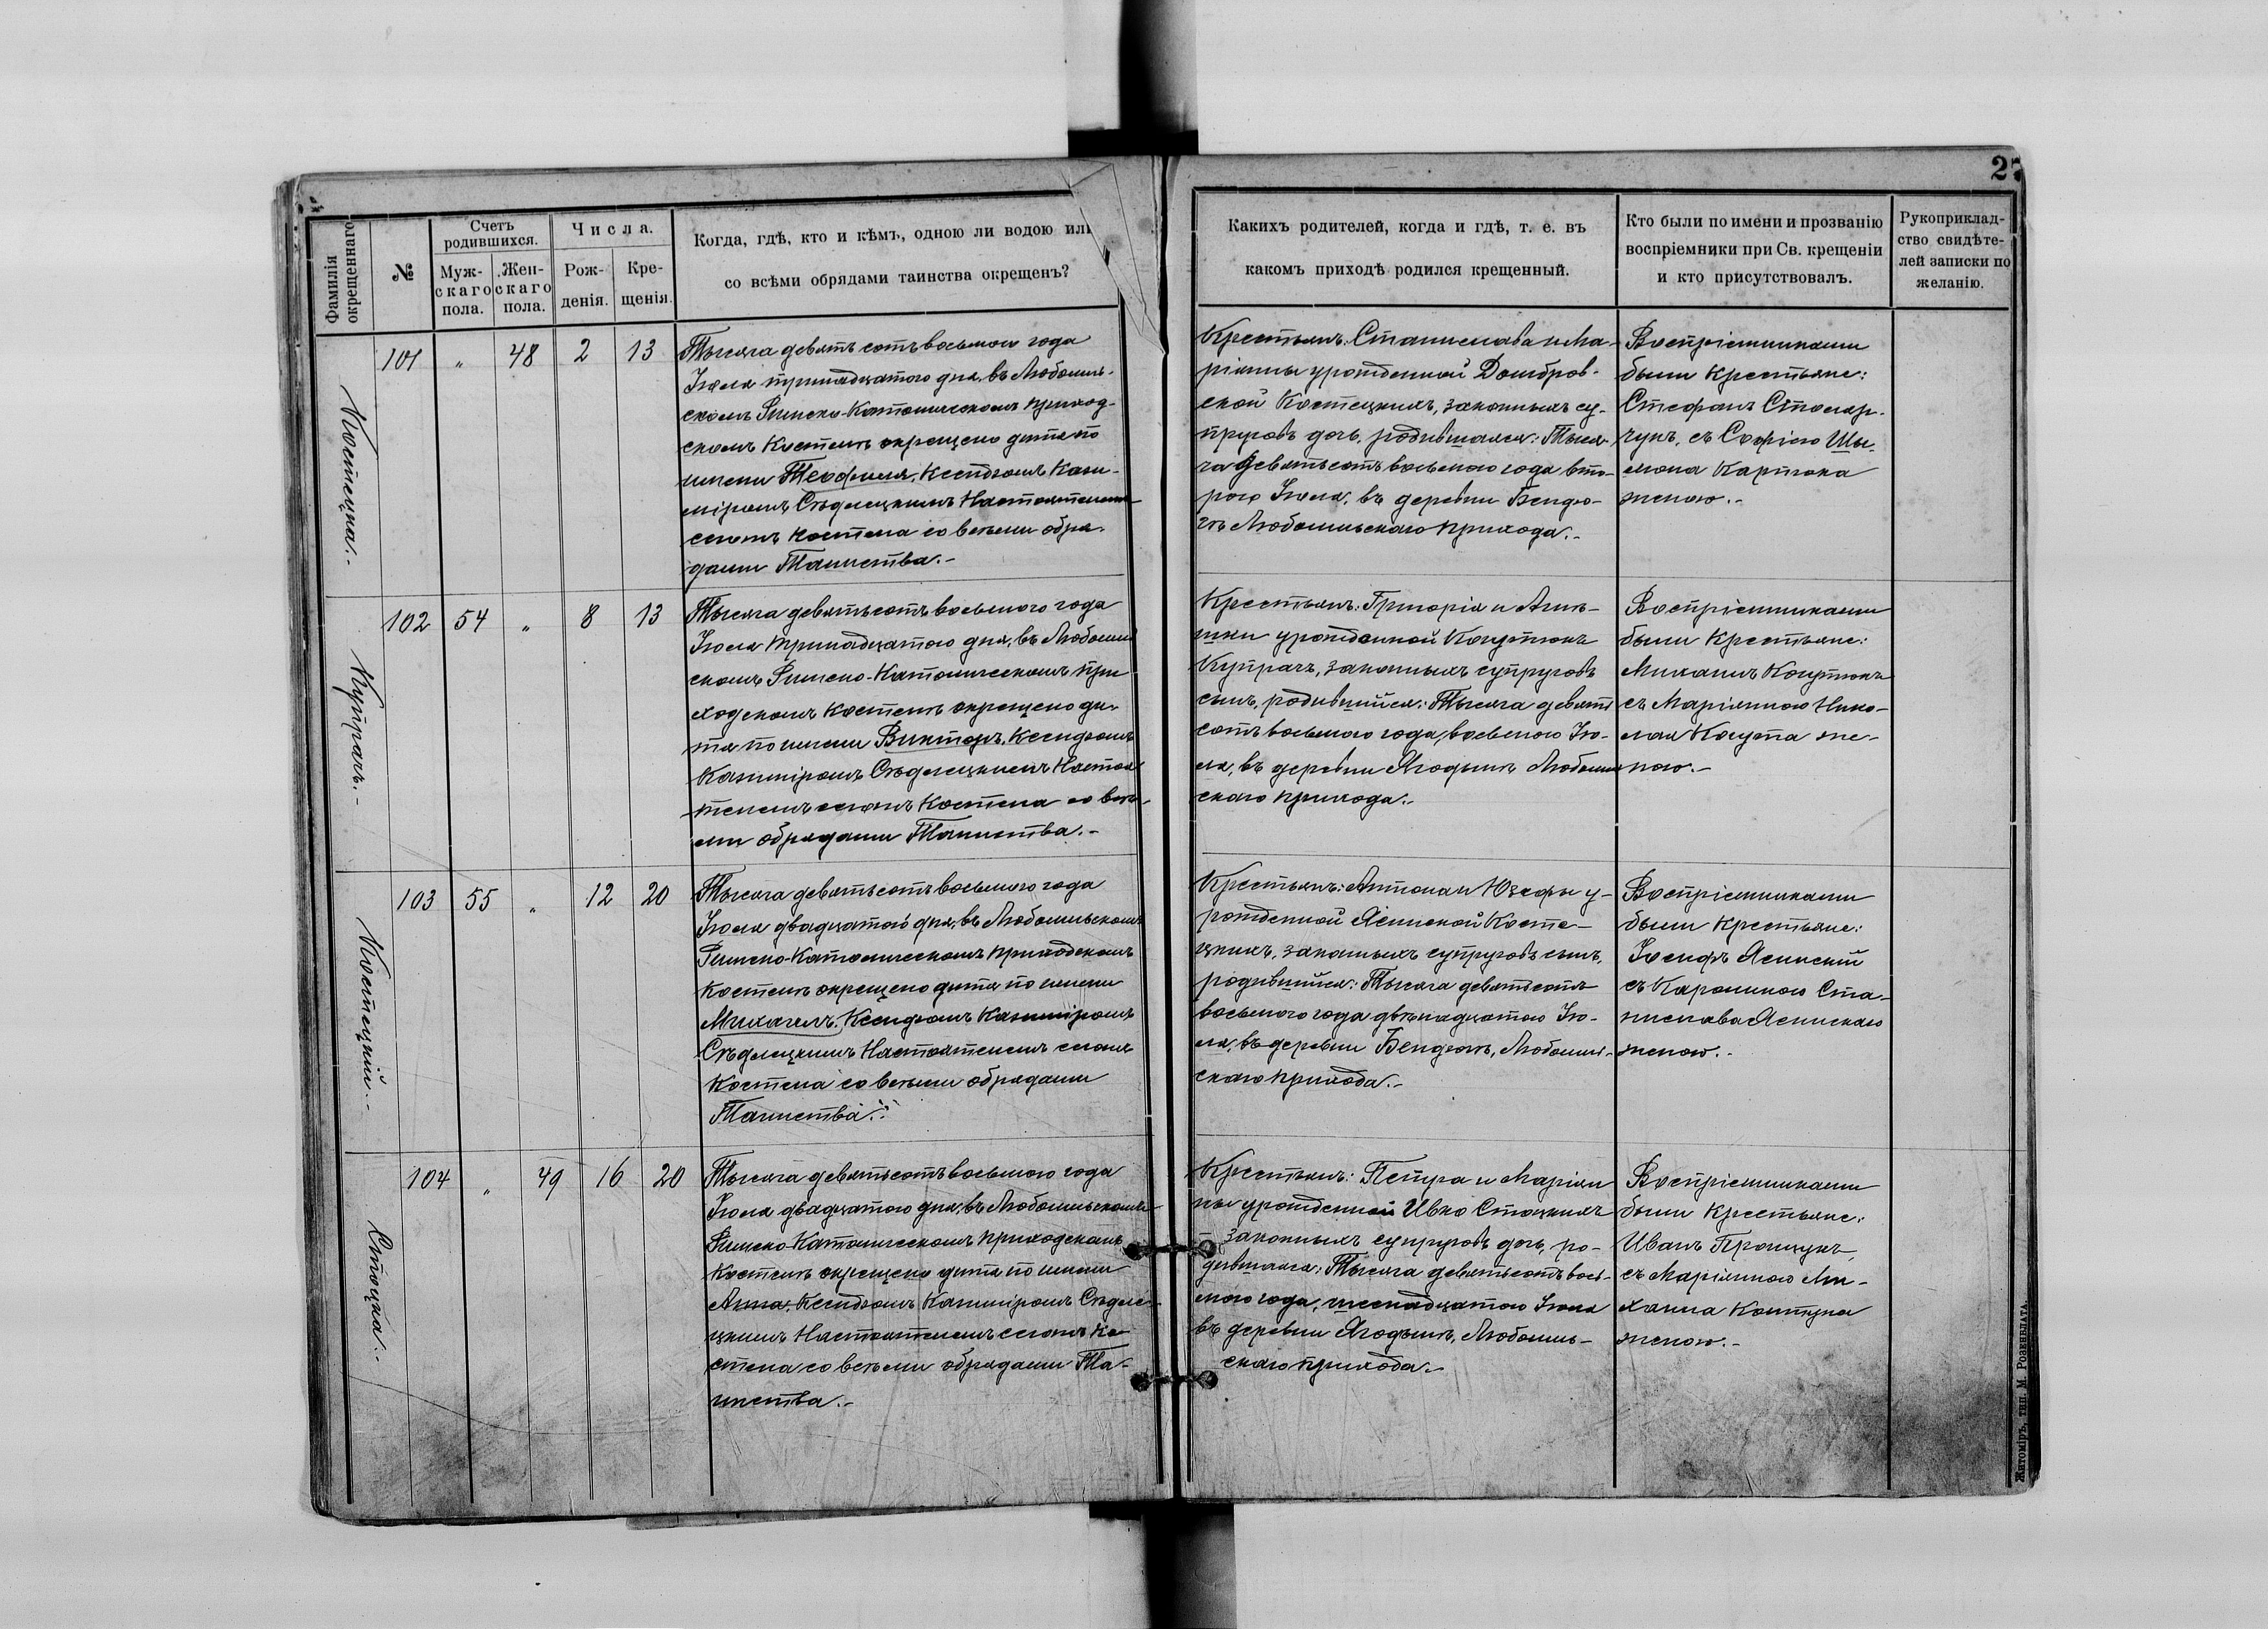 27
Фамилія окрещеннаго
№
Счетъ родившихся.
Муж-
скаго
пола.
Жен-
скаго
пола.
Числа.
Рож-
денія.
Кре-
щенія.
Когда, гдѣ, кто и кѣмъ, одною ли водою или
со всѣми обрядами таинства окрещенъ?
Какихъ родителей, когда и гдѣ, т. е. въ
какомъ приходѣ родился крещенный.
Кто были по имени и прозванію
воспріемники при Св. крещеніи
и кто присутствовалъ.
Рукоприклад-
ство свидѣте-
лей записки по
желанію.
Костецка.-
101 " 48 2 13
Тысяча девятьсотъ восьмого года
Іюля тринадцатого дня, въ Любомль-
скомъ Римско-Католическомъ приход-
скомъ Костелѣ окрещено дитя по
имени Теофиля, Ксендзомъ Кази-
міромъ Сѣдлецкимъ Настоятелемъ
сегожъ Костела со всѣми обря-
дами Таинства.-
Крестьянъ: Станислава и Ма-
ріянны урожденной Домбров-
ской Костецкихъ, законныхъ су-
пруговъ дочь, родившаяся: Тыся-
ча девятьсотъ восьмого года вто-
рого Іюля, въ деревни Бендю-
гѣ Любомльскаго прихода.-
Воспріемниками
были Крестьяне:
Стефанъ Столяр-
чукъ, съ Софіею Шы-
мона Карпюка
женою.-
Купрачъ.-
102 54 " 8 13
Тысяча девятьсотъ восьмого года
Іюля тринадцатого дня, въ Любомль
скомъ Римско-Католическомъ при
ходскомъ Костелѣ окрещено ди-
тя по имени Викторъ, Ксендзомъ
Казиміромъ Сѣдлецкимъ Настоя
телемъ сегожъ Костела со всѣ-
ми обрядами Таинства.-
Крестьянъ: Григорія и Агнѣ-
шки урожденной Когутюкъ
Купрачъ, законныхъ супруговъ
сынъ, родившійся: Тысяча девять
сотъ восьмого года, восьмого Ію-
ля, въ деревни Ягодынѣ Любомль
скаго прихода.-
Воспріемниками
были Крестьяне:
Михаилъ Когутюкъ
съ Маріянною Нико-
лая Когута же-
ною.-
Костецкій.-
103 55 " 12 20
Тысяча девятьсотъ восьмого года
Іюля двадцатого дня, въ Любомльскомъ
Римско-Католическомъ приходскомъ
Костелѣ окрещено дитя по имени
Михаилъ, Ксендзомъ Казиміромъ
Сѣдлецкимъ Настоятелемъ сегожъ
Костела со всѣми обрядами
Таинства.-
Крестьянъ: Антона и Юзефы у-
рожденной Ясинской Косте-
цкихъ, законныхъ супруговъ сынъ,
родившійся: Тысяча девятьсотъ
восьмого года двѣнадцатого Ію-
ля, въ деревни Бендюгѣ, Любомль-
скаго прихода.-
Воспріемниками
были Крестьяне:
Іосифъ Ясинскій
съ Каролиною Ста-
нислава Ясинскаго
женою.-
Стоцка.-
104 " 49 16 20
Тысяча девятьсотъ восьмого года
Іюля двадцатого дня, въ Любомльскомъ
Римско-Католическомъ приходскомъ
Костелѣ окрещено дитя по имени
Анна, Ксендзомъ Казиміромъ Сѣдле-
цкимъ Настоятелемъ сегожъ Ко
стела со всѣми обрядами Та-
инства.-
Крестьянъ: Петра и Маріян
ны урожденной Ивко Стоцкихъ
законныхъ супруговъ дочь, ро-
дившаяся: Тысяча девятьсотъ вось-
мого года, шеснадцатого Іюля
въ деревни Ягодынѣ, Любомль-
скаго прихода.-
Воспріемниками
были Крестьяне:
Иванъ Прощукъ,
съ Маріянною Ми-
хаила
женою.-
Житоміръ, тип. М. Розенблата.